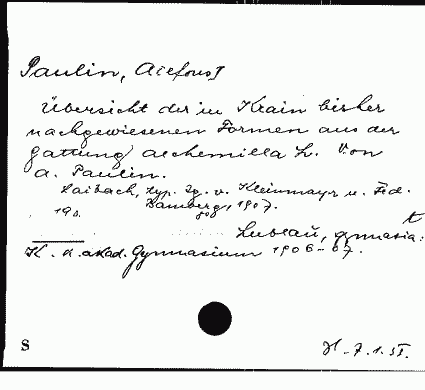 Paulin, Alfons
Übersicht der in Krain bisher
nachgewiesenen Formen aus der
gattung alchemilla L. Von
A. Paulin.
Laibach, typ. Ig. v. Kleinmayr u. Fed.
19 s. Bamberg, 1907.
Lubeau, gymnasia:
K. k. akad. Gymnasium 1906-07.
S